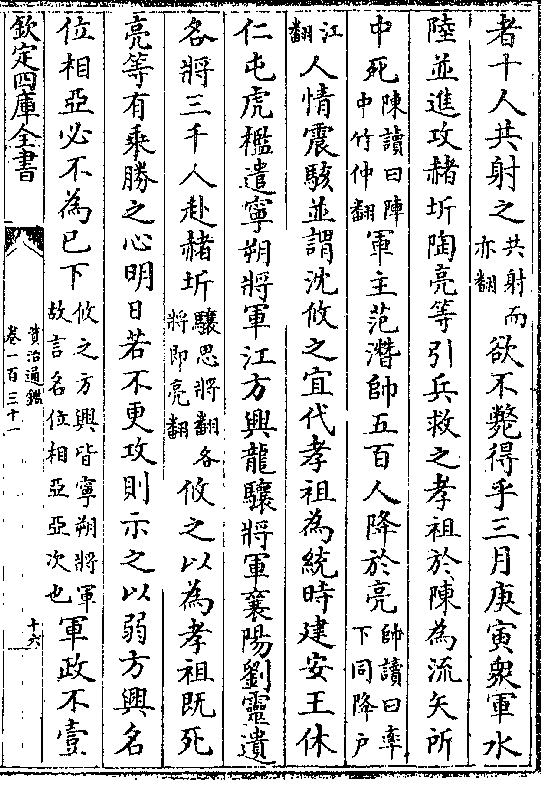 者十人共射之共射而亦翻欲不斃得乎三月庚寅衆軍水
陸並進攻赭圻陶亮等引兵救之孝祖於陳為流矢所
中死陳讀曰陣中竹仲翻軍主范潛帥五百人降於亮帥讀曰率下同降户
江翻人情震駭並謂沈攸之宜代孝祖為統時建安王休
仁屯虎檻遣寧朔將軍江方興龍驤將軍襄陽劉靈遺
各將三千人赴赭圻驤思將翻各將即亮翻攸之以為孝祖既死
亮等有乘勝之心明日若不更攻則示之以弱方興名
位相亞必不為已下攸之方興皆寧朔將軍故言名位相亞亞次也軍政不壹
欽定四庫全書
資治通鑑
卷一百三十一
十六